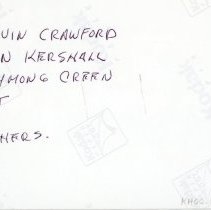 VIN CRAWFORD
N KERSHALL
YMONG GREEN
T
HERS.
KHOO